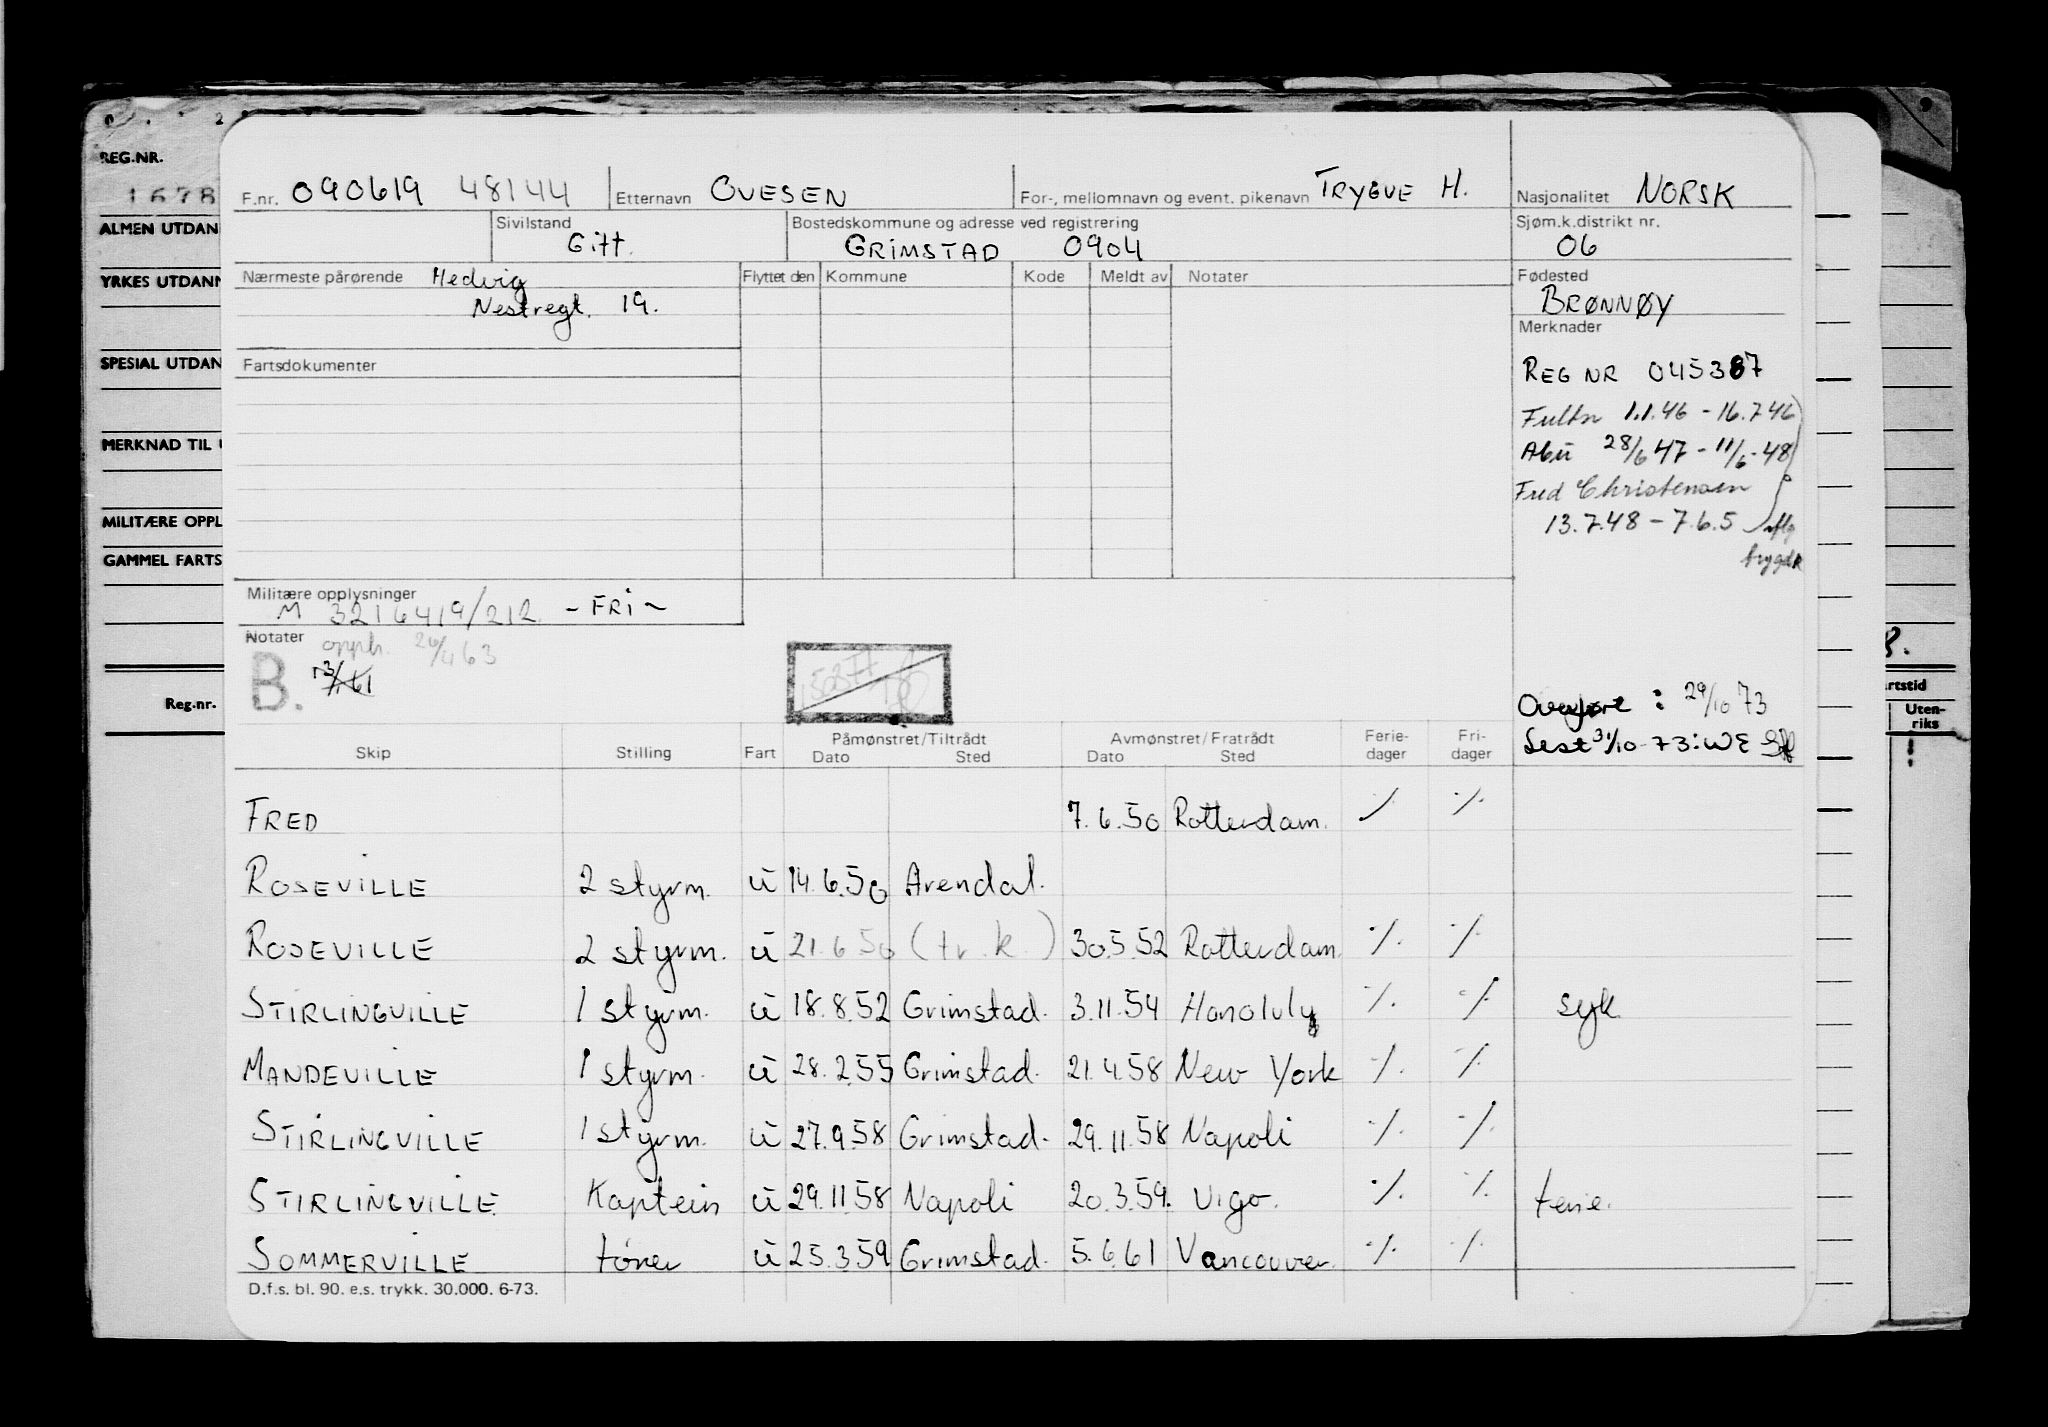 REG.NR.
1678
ALMEN UTDAN
YRKES UTDANN
SPESIAL UTDAN
MERKNAD TIL
MILITÆRE OPPL
GAMMEL FARTS
Reg.nr.
rtstid
Uten-
riks
F.nr. 090619 48144 Etternavn OVESEN For-, mellomnavn og event. pikenavn TRYGVE H. Nasjonalitet NORSK
Sivilstand Gift. Bostedskommune og adresse ved registrering GRIMSTAD 0904 Sjøm.k.distrikt nr. 06
Nærmeste pårørende Hedvig Flyttet den Kommune Kode Meldt av Notater Fødested
Nestregt. 19. BRØNNØY
Merknader
Fartsdokumenter REG NR 045387
1.1.46 - 16.7.46
28/6 47 - 11/6-48
Fred Christensen
13.7.48 - 7.6.5
Militære opplysninger
M 3216419/212 - FRI -
Notater opph. 26/4 63
B. 13/1 61
Overført : 29/10 73
Lest 31/10-73: WE
Skip Stilling Fart Påmønstret/Tiltrådt Dato Sted Avmønstret/Fratrådt Dato Sted Ferie-dager Fri-dager
FRED 7.6.50 Rotterdam. ⁒ ⁒
ROSEVILLE 2 styrm. u 14.6.50 Arendal.
ROSEVILLE 2 styrm. u 21.6.50 (tr.k.) 30.5.52 Rotterdam ⁒ ⁒
STIRLINGVILLE 1 styrm. u 18.8.52 Grimstad. 3.11.54 Honolulu ⁒ ⁒ syk.
MANDEVILLE 1 styrm. u 28.2.55 Grimstad. 21.4.58 New York ⁒ ⁒
STIRLINGVILLE 1 styrm. u 27.9.58 Grimstad. 29.11.58 Napoli ⁒ ⁒
STIRLINGVILLE Kaptein u 29.11.58 Napoli 20.3.59. Vigo. ⁒ ⁒ ferie.
SOMMERVILLE fører u 25.3.59 Grimstad. 5.6.61 Vancouver ⁒ ⁒
D.f.s. bl. 90. e.s. trykk. 30.000. 6-73.